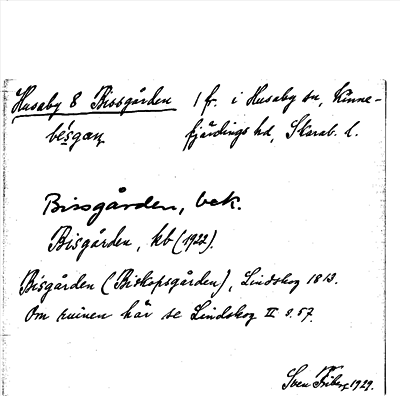 Husaby 8 Bissgården 1 fr. i Husaby sn, Kinne-
fjärdings hd, Skarab. l.
Bissgården, bek.
Bisgården, kb (1922).
Bisgården (Biskopsgården), Lindskog 1812.
Om ruinen här se Lindskog II s. 57.
Sven Friberg 1929.